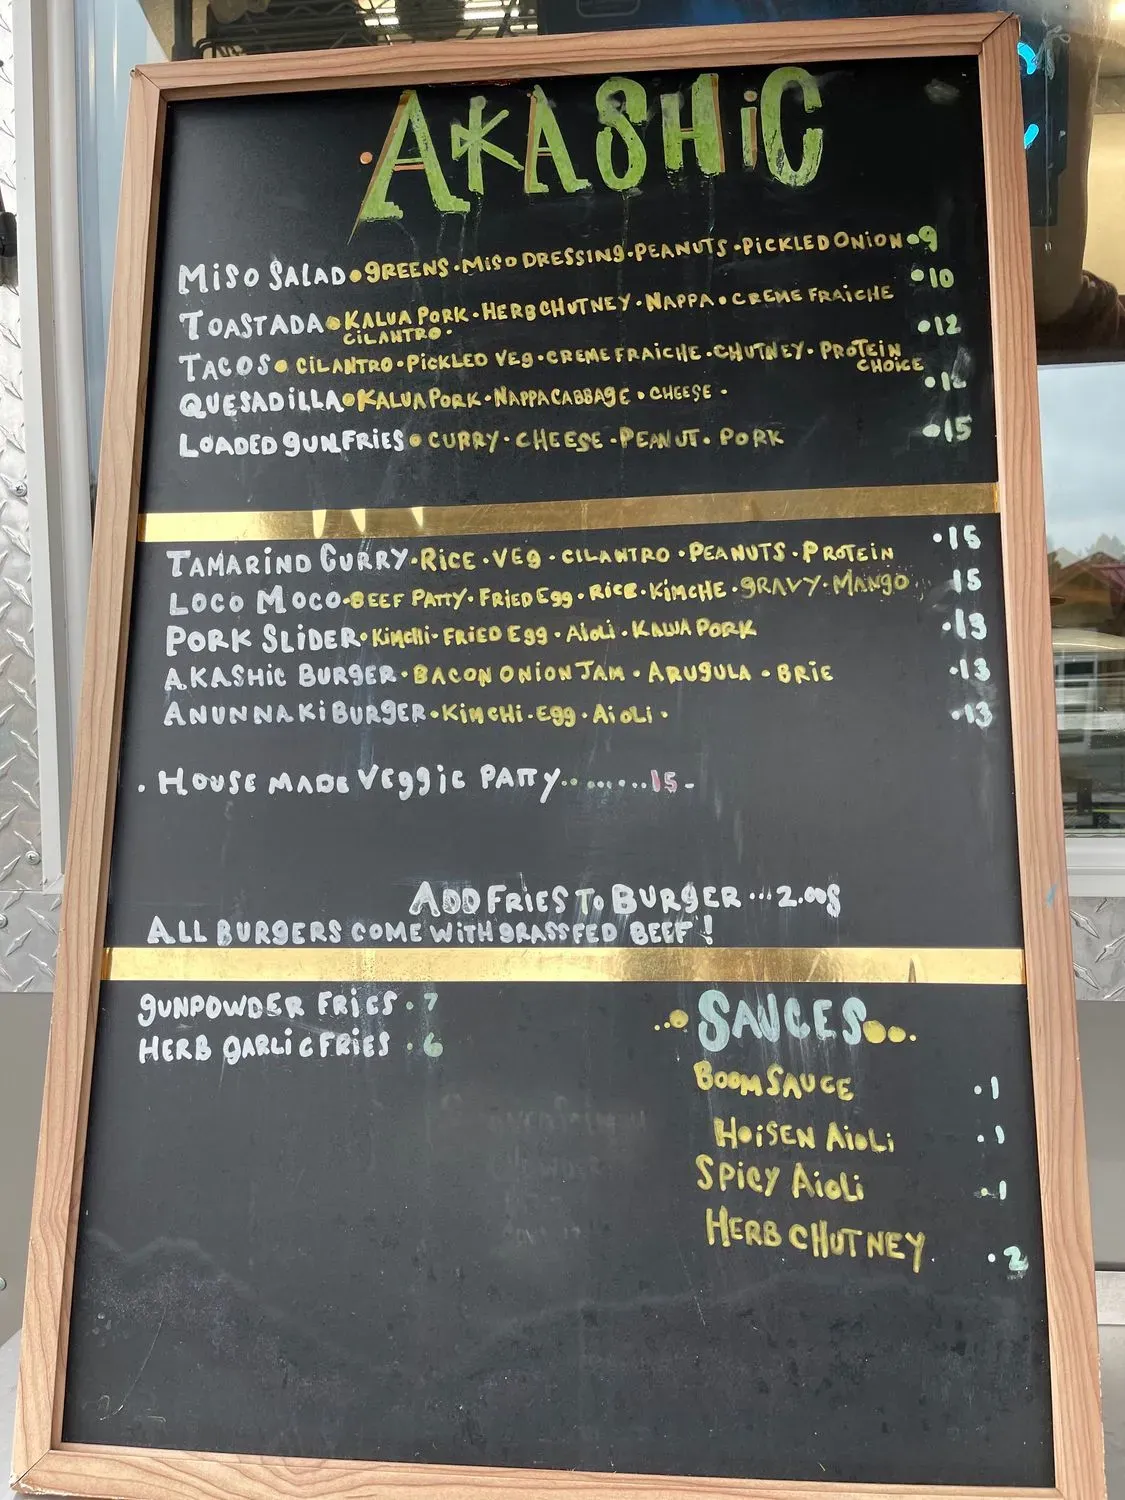 AKASHiC
MiSO SALAD • gREENS • MiSO DRESSiNg • PEANUTS • PiCKLED ONiON • 9
• 10
TOASTADA • KALUA PORK • HERB CHUTNEY • NAPPA • CREME FRAiCHE
CiLANTRO •
• 12
TACOS • CiLANTRO • PiCKLED VEg • CREME FRAiCHE • CHUTNEY • PROTEiN
CHOiCE
QUESADiLLA • KALUA PORK • NAPPA CABBAgE • CHEESE •
LOADED gUN FRiES • CURRY • CHEESE • PEANUT • PORK • 15
TAMARiND CURRY • RiCE • VEg • CiLANTRO • PEANUTS • PROTEiN • 15
LOCO MOCO • BEEF PATTY • FRiED Egg • RiCE • KiMCHE • gRAVY • MANgO 15
PORK SLiDER • KiMCHi • FRiED Egg • AiOLi • KALUA PORK • 13
AKASHiC BURgER • BACON ONiON JAM • ARUgULA • BRiE • 13
ANUNNAKi BURgER • KiMCHi • Egg • AiOLi • • 13
• HOUSE MADE VEggiE PATTY ........ 15 -
ADD FRiES TO BURgER ... 2.00$
ALL BURgERS COME WiTH gRASSFED BEEF!
gUNPOWDER FRiES • 7
HERB gARLiC FRiES • 6
..• SAUCES •..
BOOM SAUCE • 1
HOiSEN AiOLi • 1
SPiCY AiOLi • 1
HERB CHUTNEY • 2